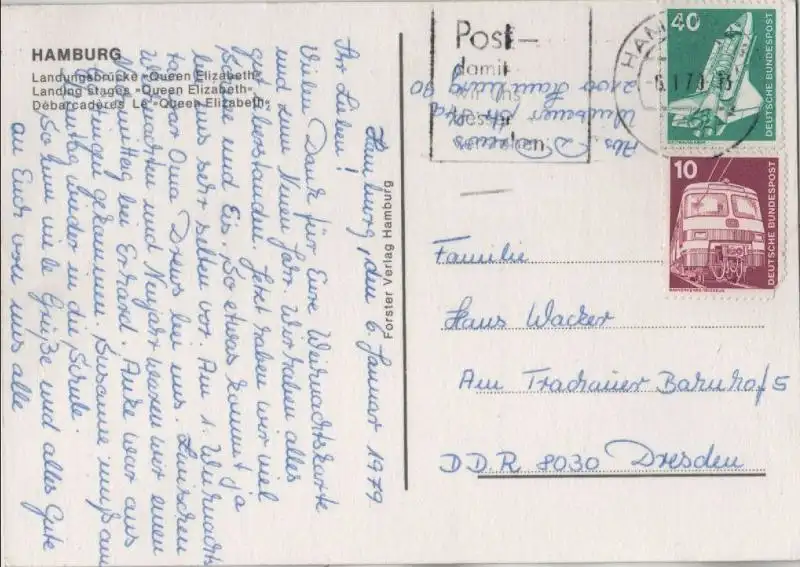 HAMBURG
Landungsbrücke »Queen Elizabeth«
Landing Stages »Queen Elizabeth«
Débarcadères Le »Queen Elizabeth«
Hamburg, den 6. Januar 1979.
Ihr Lieben!
Vielen Dank für Eure Weihnachtskarte
und zum Neuen Jahr. Wir haben alles
gut überstanden. Jetzt haben wir viel
und Eis. So etwas kommt ja
bei uns sehr selten vor. Am 1. Weihnachts
tag war Oma Drews bei uns. Zwischen
Weihnachten und Neujahr waren wir einen
Nachmittag bei Erhard. Anke war aus
gekommen. Susanne muß am
wieder in die Schule.
So nun viele Grüße und alles Gute
an Euch von uns alle
Forster Verlag Hamburg
Abs. Drews
2100 Hamburg 90
Post–
damit
wir uns
besser
verstehen.
HAM
6.1.79
40
DEUTSCHE BUNDESPOST
10
DEUTSCHE BUNDESPOST
Familie
Hans Wacker
Am Trachauer Bahnhof 5
DDR 8030 Dresden